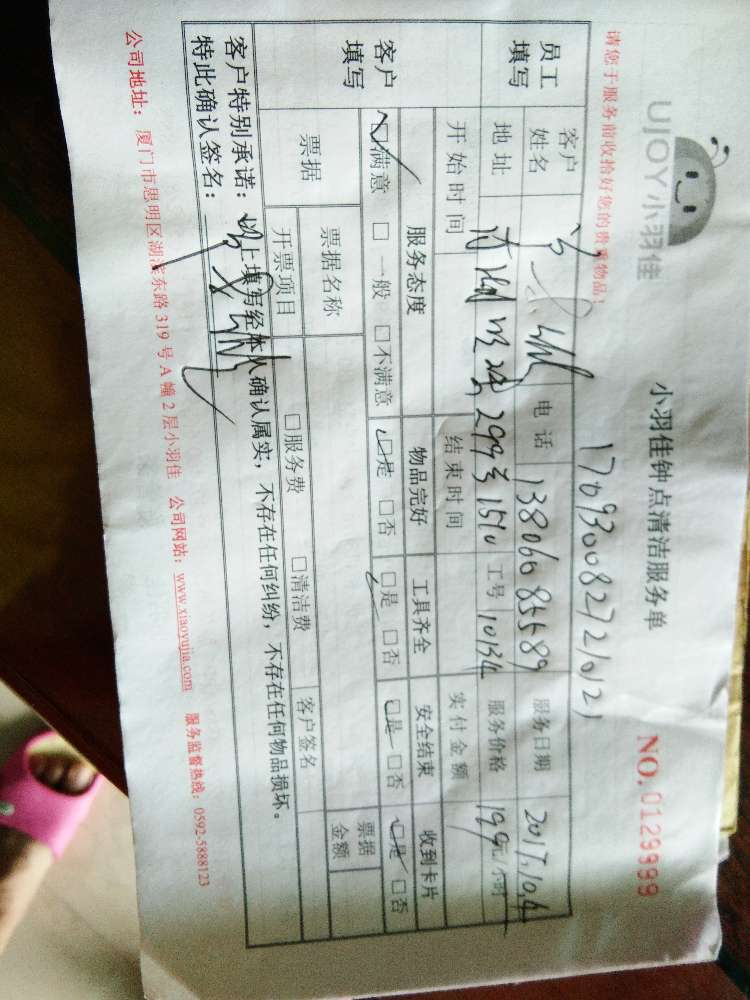 UJOY小羽佳
小羽佳钟点清洁服务单
NO.0129999
请您于服务前收拾好您的贵重物品!
1709300827210121
员工填写
客户姓名 电话 13806085589 服务日期 2017.10.4
地址 299弄1510 工号 10134 服务价格 199元/小时
开始时间 结束时间 实付金额
客户填写
服务态度 物品完好 工具齐全 安全结束 收到卡片
☑满意 □一般 □不满意 ☑是 □否 ☑是 □否 ☑是 □否 ☑是 □否
票据 票据名称 票据金额
开票项目 □服务费 □清洁费 客户签名
客户特别承诺:以上填写经本人确认属实,不存在任何纠纷,不存在任何物品损坏。
特此确认签名:
公司地址:厦门市思明区湖滨东路319号A幢2层小羽佳 公司网站:www.xiaoyujia.com 服务监督热线:0592-5888123